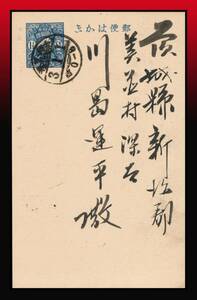 郵便はかき
茨城縣新治郡
美並村深谷
川島運平殿